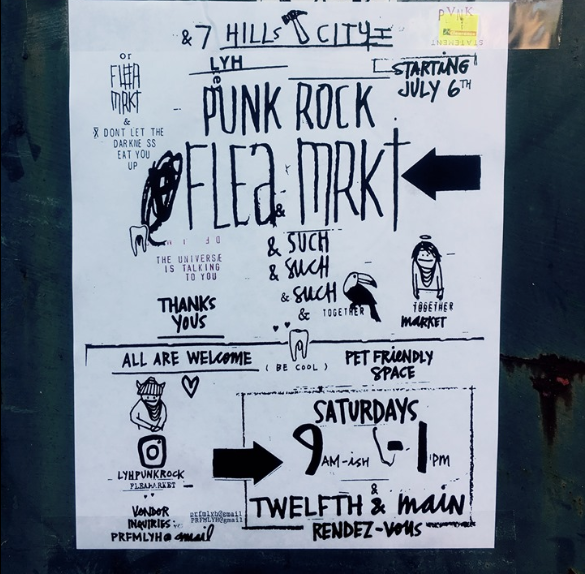 & 7 HILLS CITY
LYH
STARTING
JULY 6TH
PUNK ROCK
FLEA MRKT
or
FLEA
MRKT
&
DONT LET THE
DARKNE SS
EAT YOU
UP
THE UNIVERSE
IS TALKING
TO YOU
& SUCH
& SUCH
& SUCH
&
TOGETHER
TOGETHER
MARKET
THANKS
YOUS
ALL ARE WELCOME
(BE COOL)
PET FRIENDLY
SPACE
LYHPUNKROCK
FLEAMARKET
VENDOR
INQUIRIES
PRFMLYH@gmail
prfmlyh@gmail
PRFMLYH@gmail
SATURDAYS
9 AM-ish - 1 PM
&
TWELFTH & main
RENDEZ-VOUS